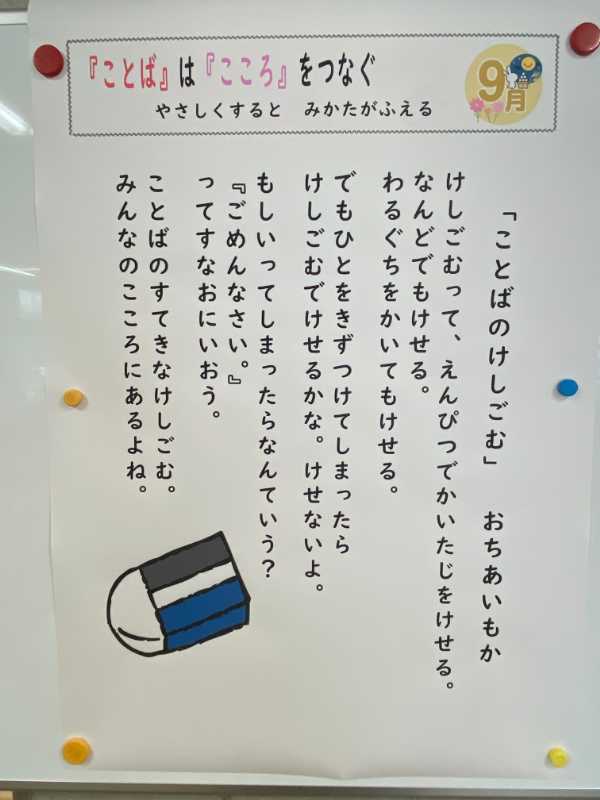 『ことば』は『こころ』をつなぐ
やさしくすると　みかたがふえる
9月
「ことばのけしごむ」　おちあいもか
けしごむって、えんぴつでかいたじをけせる。
なんどでもけせる。
わるぐちをかいてもけせる。
でもひとをきずつけてしまったら
けしごむでけせるかな。けせないよ。
もしいってしまったらなんていう？
『ごめんなさい。』
ってすなおにいおう。
ことばのすてきなけしごむ。
みんなのこころにあるよね。